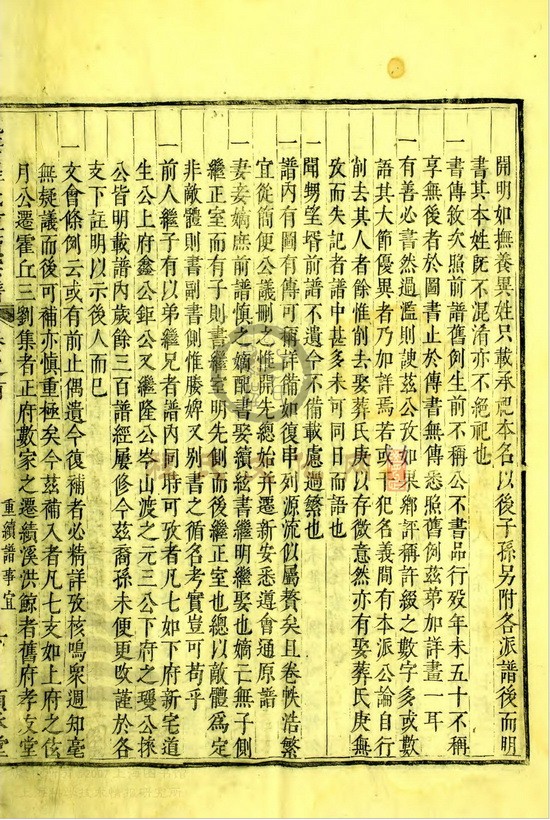 開明如撫養異姓只載承祀本名以後子孫另附各派譜後而明
書其本姓旣不混淆亦不絕祀也
一書傳敘欠照前譜舊例生前不稱公不書品行歿年未五十不稱
享無後者於圖書止於傳書無傳悉照舊例茲苐加詳畫一耳
一有善必書然過濫則諛茲公攷如果鄉評稱許綴之數字多或數
語其大節優異者乃加詳焉若或干犯名義間有本派公論自行
削去其人者餘惟削去娶葬氏庚以存微意然亦有娶葬氏庚無
攷而失記者譜中甚多未可同日而語也
一聞甥望壻前譜不遺今不備載慮過繁也
一譜內有圖有傳可稱詳備如復串列源流似屬贅矣且卷帙浩繁
宜從簡便公議刪之惟開先總始并遷新安悉遵會通原譜
一妻妾嫡庶前譜慎之嫡配書娶續絃書繼明繼娶也嫡亡無子側
繼正室而有子則書繼室明先側而後繼正室也總以敵體爲定
非敵體則書副書側惟媵婢又別書之循名考實豈可苟乎
一前人繼子有以弟繼兄者譜內同時可攷者凡七如下府新宅道
生公上府鑫公鉅公又繼隆公岺山渡之元三公下府之璦公探
公皆明載譜內歲餘三百譜經屢修今茲裔孫未便更改謹於各
支下註明以示後人而已
一文會條例云或有前止偶遺今復補者必精詳攷核鳴衆週知毫
無疑議而後可補亦慎重極矣今茲補入者凡七支如上府之伭
月公遷霍丘三劉集者正府數家之遷績溪洪鯨者舊府孝友堂
重續譜事宜